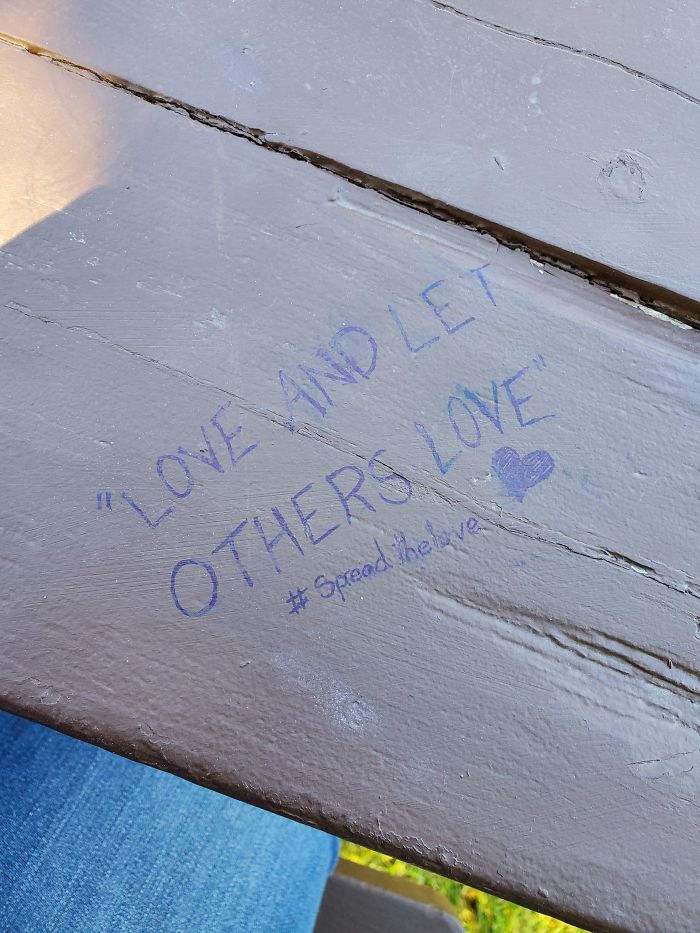 "LOVE AND LET
OTHERS LOVE"
#Spread the love